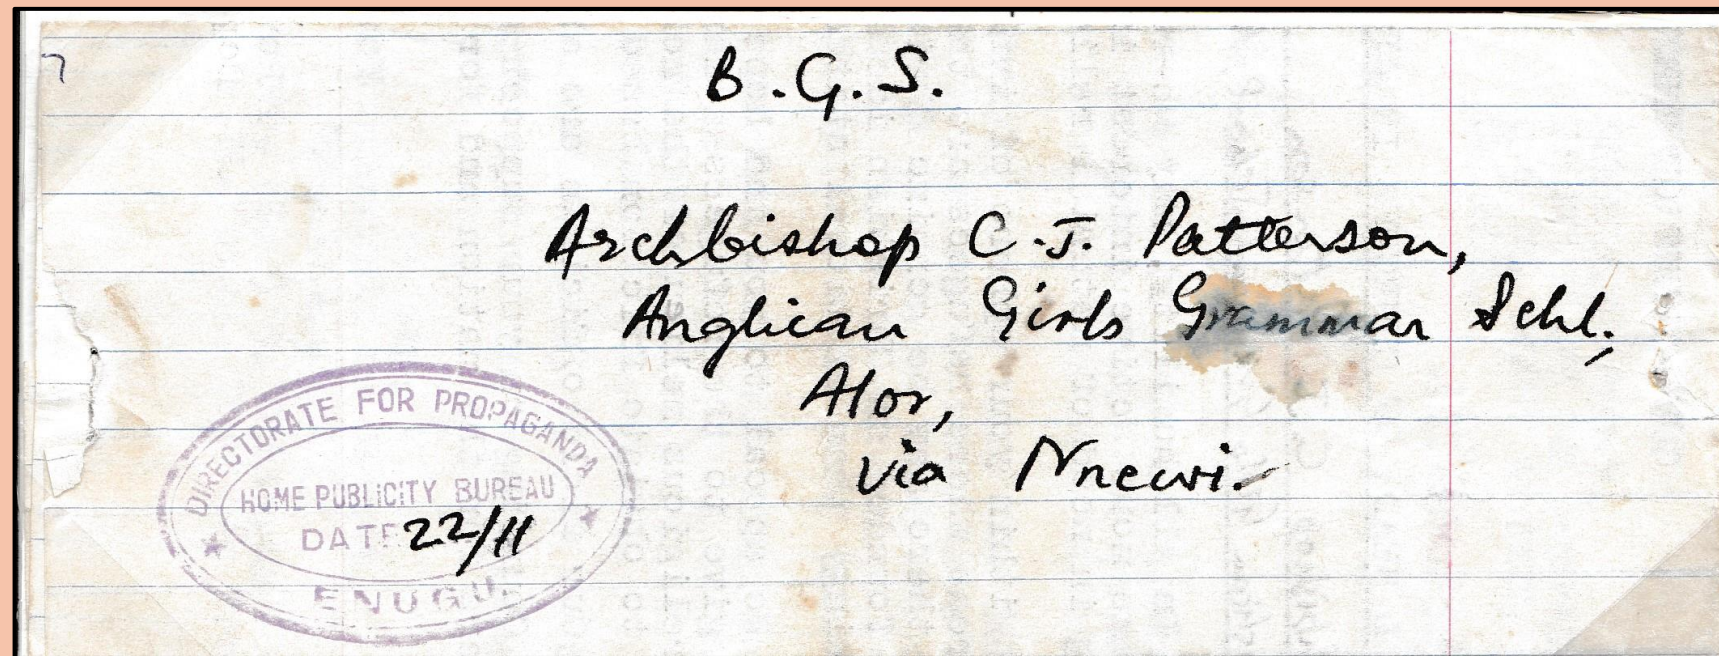 B.G.S.
Archbishop C.J. Patterson,
Anglican Girls Grammar Schl.,
Alor,
via Nnewi.
DIRECTORATE FOR PROPAGANDA
HOME PUBLICITY BUREAU
DATE 22/11
ENUGU.